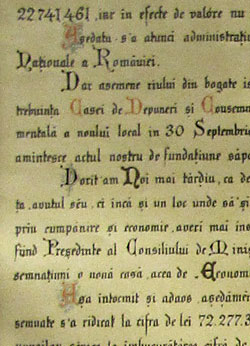 22741461, iar în efecte de valóre nu
Așeḑatu s'a atunci administrați
Naționale a României.
Dar asemene rîiului din bogate is
trebuința Casei de Depuneri și Consemn
mentală a noului local in 30 Septembrie
amintesce actul nostru de fundațiune săpa
Dorit'am Noi mai târḑiu, ca de
ta, avutul seu, ci încă și un loc unde să și
prin cumpănire și economie, averi mai îns
fiind Preşedinte al Consiliului de Minis
semnațiuni o nouă casă, acea de „Econom
Așa întocmit și adaos, așeḑămên
semnate s'a ridicat la cifra de lei 72.277.3